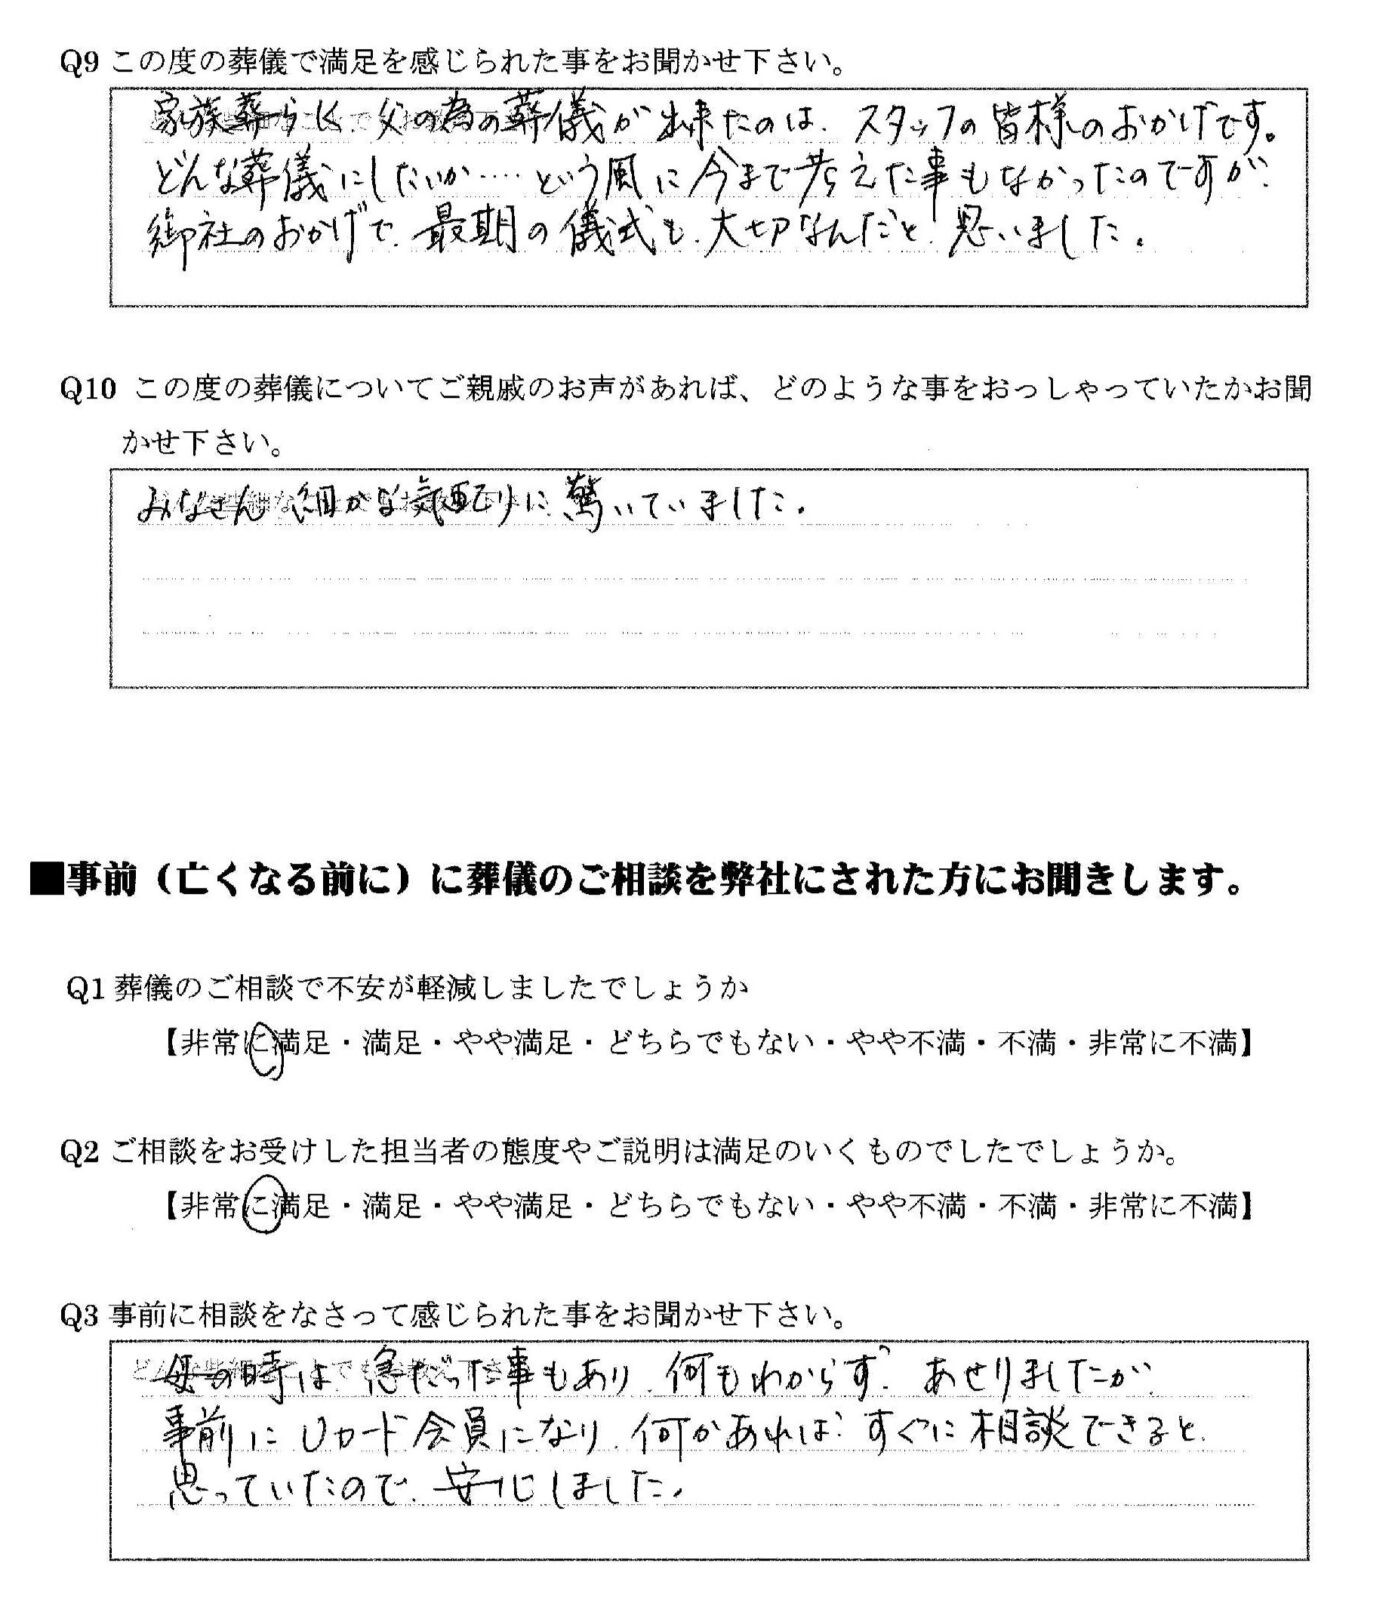 Q9 この度の葬儀で満足を感じられた事をお聞かせ下さい。
家族葬らしく、父の為の葬儀が出来たのは、スタッフの皆様のおかげです。
どんな葬儀にしたいか……という風に今まで考えた事もなかったのですが、
御社のおかげで、最期の儀式も、大切なんだと思いました。
Q10 この度の葬儀についてご親戚のお声があれば、どのような事をおっしゃっていたかお聞
かせ下さい。
みなさん細かな気配りに、驚いていました。
■事前（亡くなる前に）に葬儀のご相談を弊社にされた方にお聞きします。
Q1 葬儀のご相談で不安が軽減しましたでしょうか
【非常に満足・満足・やや満足・どちらでもない・やや不満・不満・非常に不満】
Q2 ご相談をお受けした担当者の態度やご説明は満足のいくものでしたでしょうか。
【非常に満足・満足・やや満足・どちらでもない・やや不満・不満・非常に不満】
Q3 事前に相談をなさって感じられた事をお聞かせ下さい。
母の時は、急だった事もあり、何もわからず、あせりましたが、
事前にUカード会員になり、何かあれば、すぐに相談できると、
思っていたので、安心しました。